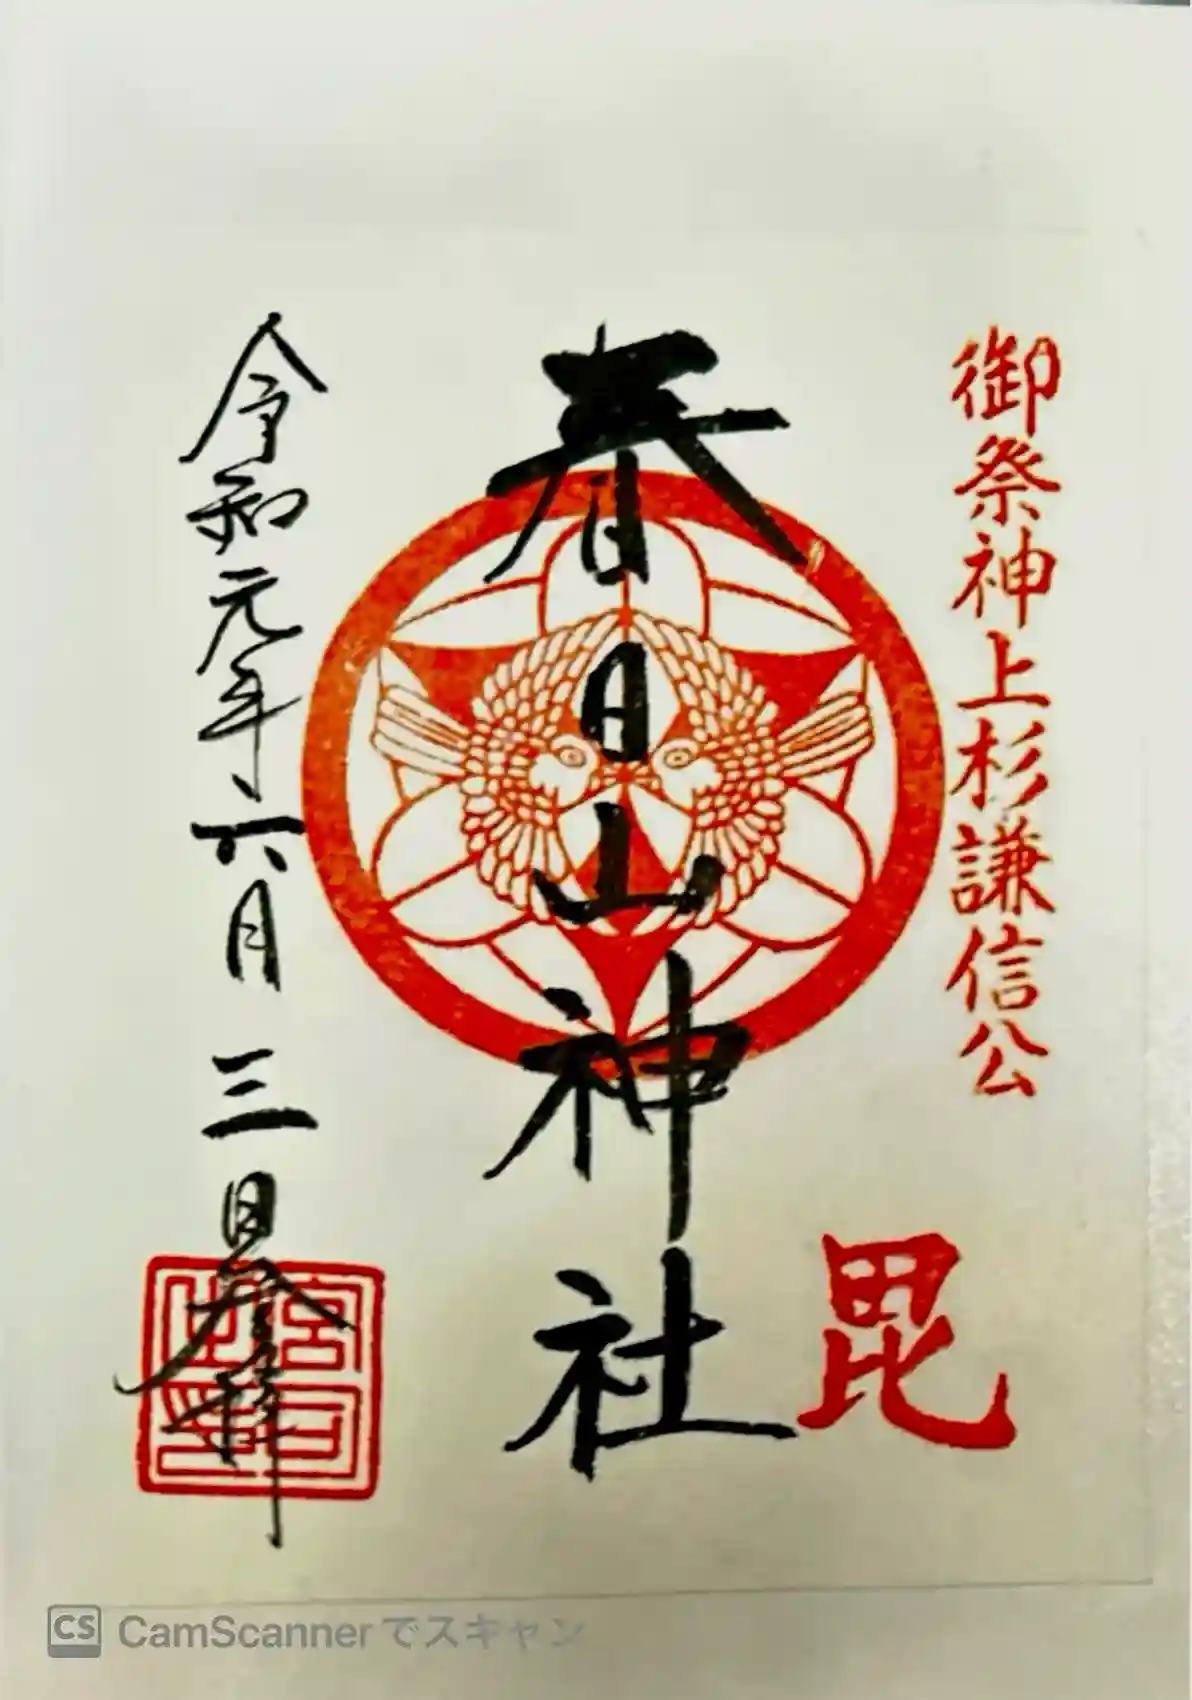 御祭神上杉謙信公
毘
春日山神社
令和元年六月三日参拝
CS CamScannerでスキャン